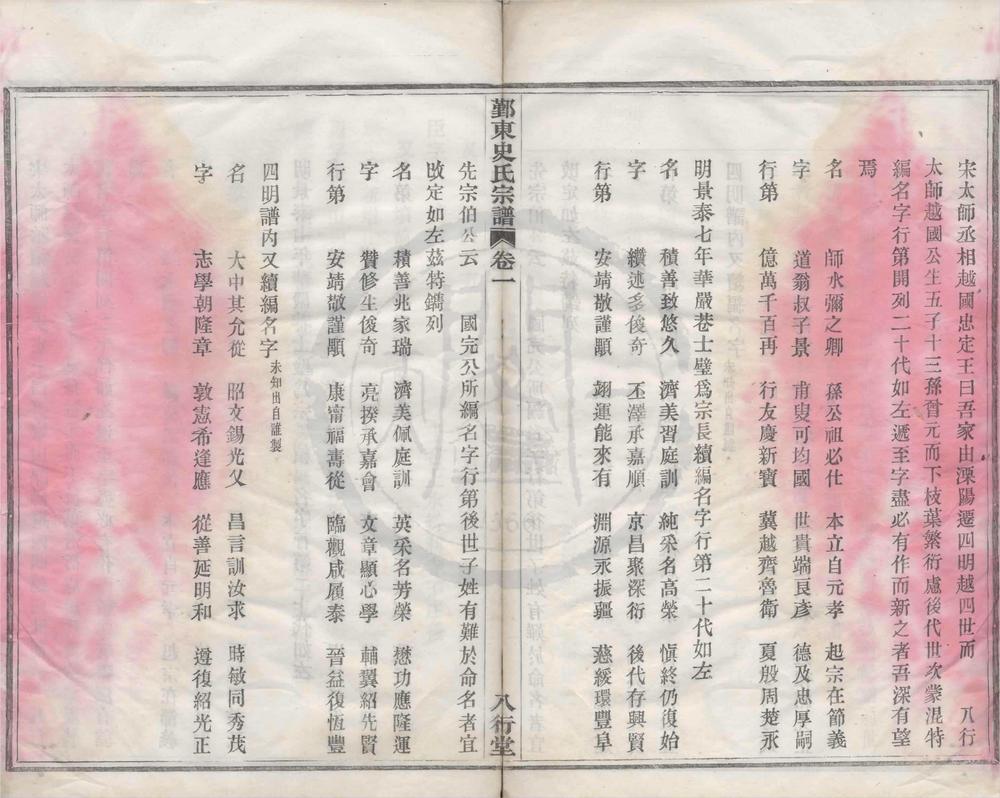 宋太師丞相越國忠定王曰吾家由溧陽遷四明越四世而　八行
太師越國公生五子十三孫晉元而下枝葉繁衍慮後代世次蒙混特
編名字行第開列二十代如左遞至字盡必有作而新之者吾深有望
焉
名　師水彌之卿　孫公祖必仕　本立自元孝　起宗在節義
字　道翁叔子景　甫叟可均國　世貴端良彥　德及忠厚嗣
行第　億萬千百再　行友慶新寶　冀越齊魯衛　夏殷周楚永
明景泰七年華嚴巷士壁爲宗長續編名字行第二十代如左
名　積善致悠久　濟美習庭訓　純采名高榮　愼終仍復始
字　纘述多俊奇　丕澤承嘉順　京昌聚深衍　後代存興賢
行第　安靖敬謹顒　翊運能來有　淵源永振疆　慈綏環豐阜
鄞東史氏宗譜　卷一　八行堂
先宗伯公云　國完公所編名字行第後世子姓有難於命名者宜
改定如左茲特鐫列
名　積善兆家瑞　濟美佩庭訓　英采名芳榮　懋功應隆運
字　贊修生俊奇　亮揆承嘉會　文章顯心學　輔翼紹先賢
行第　安靖敬謹顒　康甯福壽從　臨觀咸履泰　晉益復恆豐
四明譜內又續編名字未知出自誰製
名　大中其允從　昭文錫光父　昌言訓汝求　時敏同秀茂
字　志學朝隆章　敦憲希逢應　從善延明和　遵復紹光正